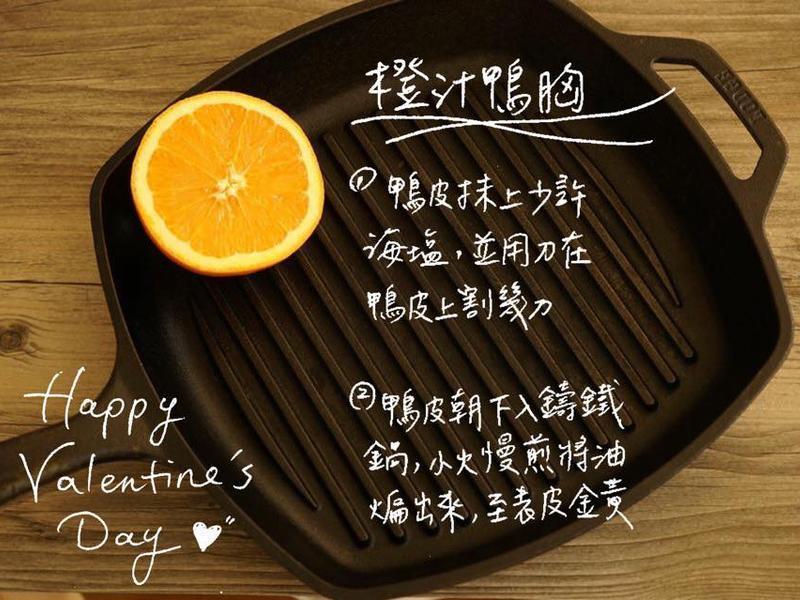 橙汁鴨胸
① 鴨皮抹上少許
海塩,並用刀在
鴨皮上割幾刀
② 鴨皮朝下入鑄鐵
鍋,小火慢煎將油
煸出來,至表皮金黃
Happy
Valentine's
Day